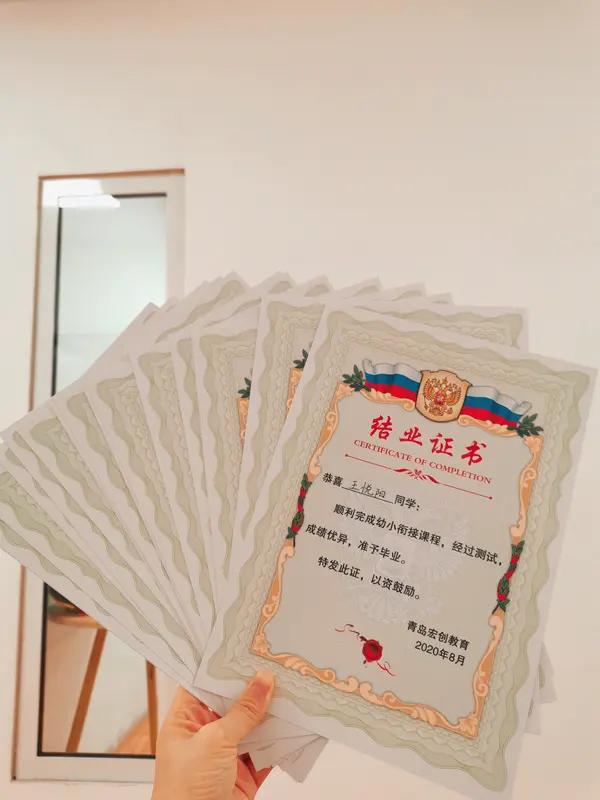 结业证书
CERTIFICATE OF COMPLETION
恭喜 王悦阳 同学：
顺利完成幼小衔接课程，经过测试，
成绩优异，准予毕业。
特发此证，以资鼓励。
青岛宏创教育
2020年8月